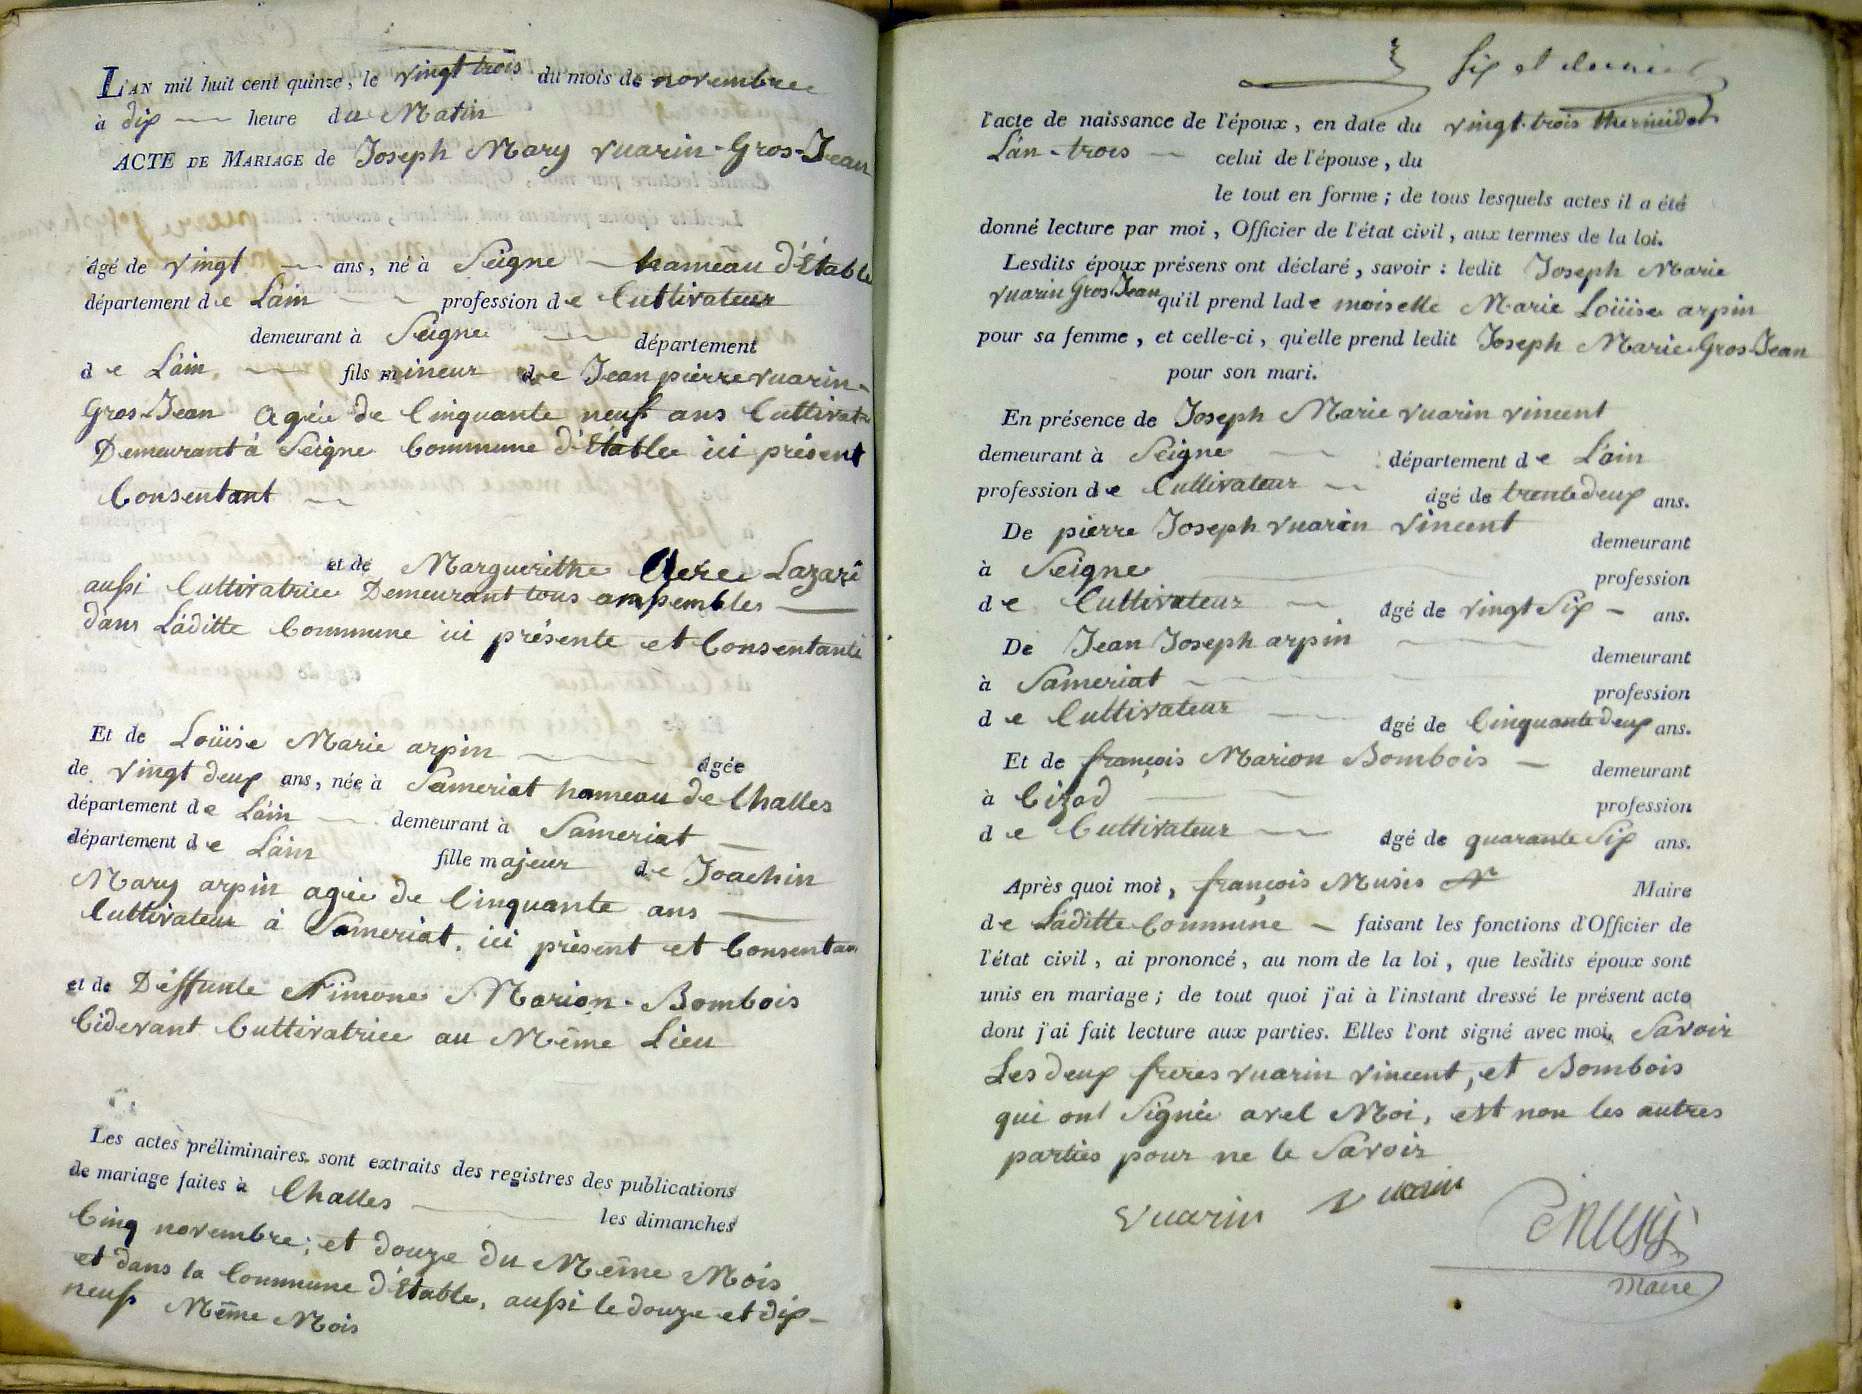 L'AN mil huit cent quinze, le vingt trois du mois de novembre
à dix heure du Matin
ACTE DE MARIAGE de Joseph Mary vuarin-Gros-Jean
âgé de vingt ans, né à Seigne hameau d'Étable
département de L'ain profession de Cultivateur
demeurant à Seigne département
de L'ain fils mineur de Jean pierre vuarin-
Gros-Jean agée de Cinquante neuf ans Cultivat
Demeurant à Seigne Commune d'Etable ici présent
Consentant
et de Marguerithe Clere Lazari
aussi Cultivatrice Demeurant tous ansembles
dans Laditte Commune ici présente et Consentante
Et de Loüise Marie arpin âgée
de vingt deux ans, née à Sameriat hameau de Challes
département de L'ain demeurant à Sameriat
département de L'ain fille majeur de Joachin
Mary arpin agée de Cinquante ans
Cultivateur à Sameriat. ici présent et Consentan
et de Déffunte Simone Marion-Bombois
Cidevant Cultivatrice au Même Lieu
Les actes préliminaires sont extraits des registres des publications
de mariage faites à Challes les dimanches
Cinq novembre; et douze du Même Mois
et dans la Commune d'Etable, aussi le douze et dix-
neuf Même Mois
Six et
l'acte de naissance de l'époux, en date du vingt-trois thermidor
L'an-trois celui de l'épouse, du
le tout en forme; de tous lesquels actes il a été
donné lecture par moi, Officier de l'état civil, aux termes de la loi.
Lesdits époux présens ont déclaré, savoir: ledit Joseph Marie
vuarin Gros Jean qu'il prend lade moiselle Marie Loüise arpin
pour sa femme, et celle-ci, qu'elle prend ledit Joseph Marie Gros-Jean
pour son mari.
En présence de Joseph Marie vuarin vincent
demeurant à Seigne département de L'ain
profession de Cultivateur âgé de trente deux ans.
De pierre Joseph vuarin vincent demeurant
à Seigne profession
de Cultivateur âgé de vingt Six ans.
De Jean Joseph arpin demeurant
à Sameriat profession
de Cultivateur âgé de Cinquante deux ans.
Et de françois Marion Bombois demeurant
à Cizod profession
de Cultivateur âgé de quarante Six ans.
Après quoi moi, françois Musis Maire
de Laditte Commune faisant les fonctions d'Officier de
l'état civil, ai prononcé, au nom de la loi, que lesdits époux sont
unis en mariage; de tout quoi j'ai à l'instant dressé le présent acte
dont j'ai fait lecture aux parties. Elles l'ont signé avec moi, Savoir
Les deux freres vuarin vincent, et Bombois
qui ont Signée avel Moi, est non les autres
parties pour ne le Savoir
vuarin vuarin
Maire